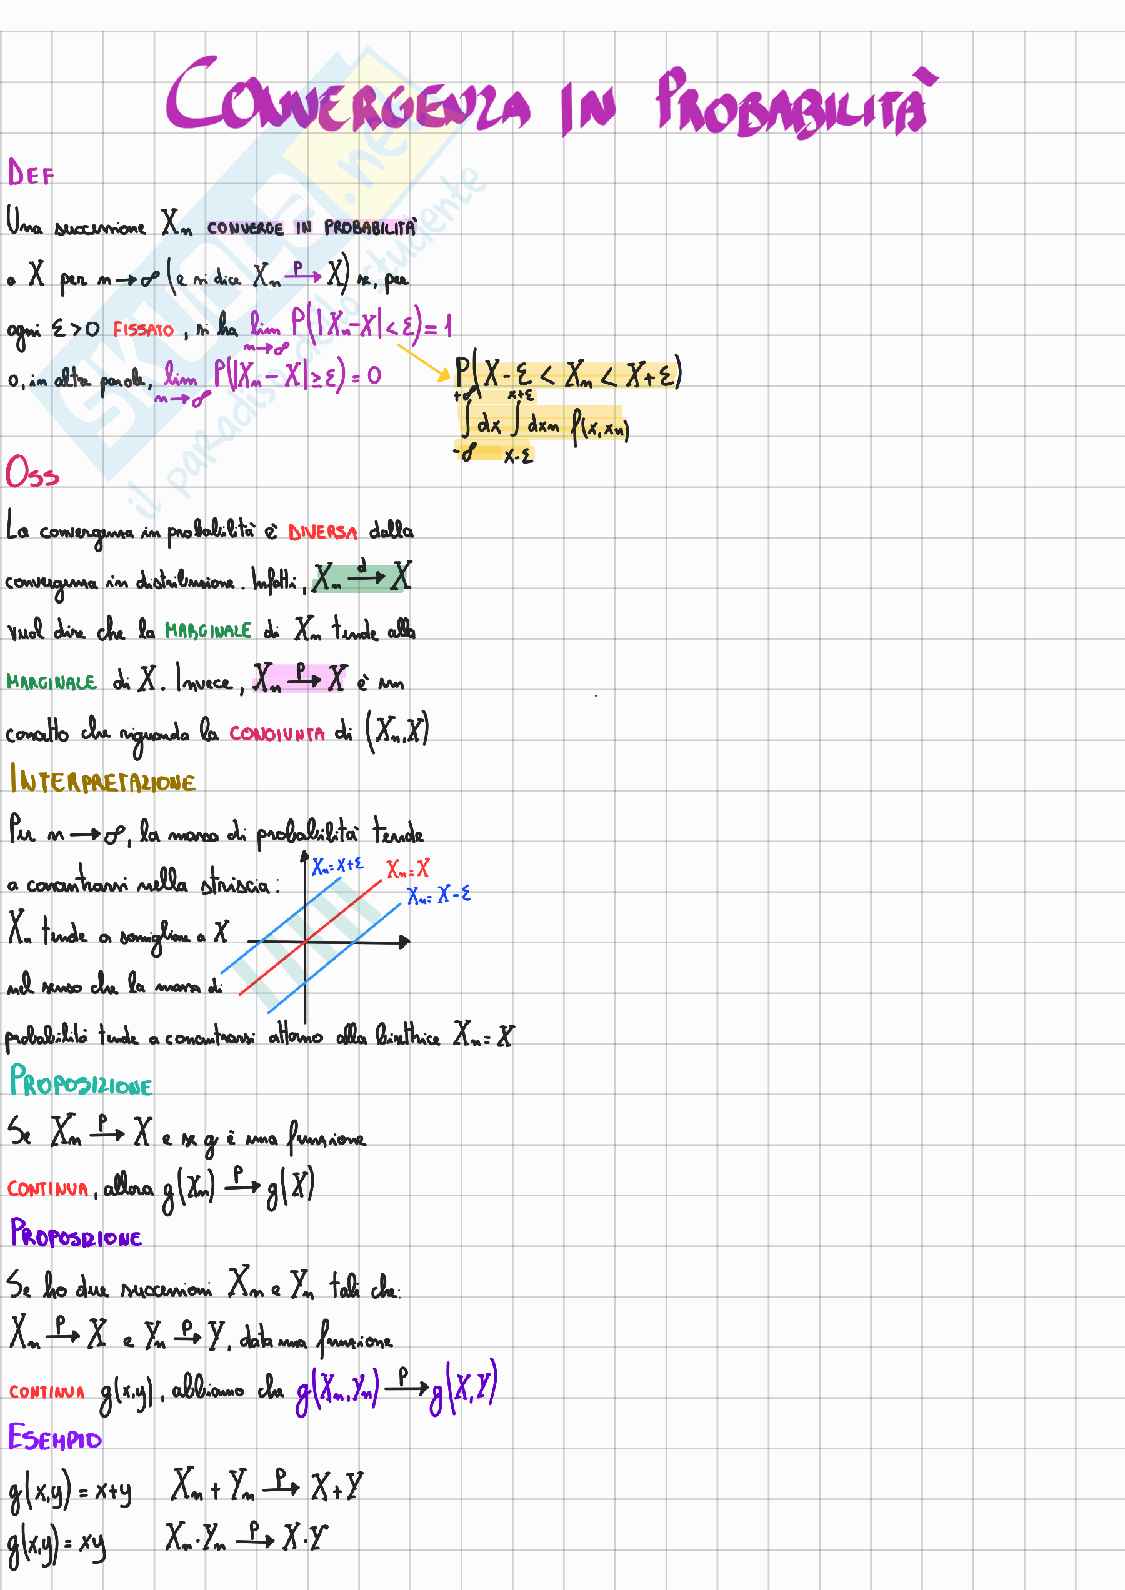 CONVERGENZA IN PROBABILITÀ
DEF
Una successione Xn CONVERGE IN PROBABILITÀ
a X per n→∞ (e si dice Xn —P→ X) se, per
ogni ε>0 FISSATO, si ha lim n→∞ P(|Xn-X|<ε)=1
o, in altre parole, lim n→∞ P(|Xn-X|≥ε)=0
P(X-ε < Xn < X+ε)
∫_{-∞}^{+∞} dx ∫_{x-ε}^{x+ε} dxn f(x,xn)
OSS
La convergenza in probabilità è DIVERSA dalla
convergenza in distribuzione. Infatti, Xn —d→ X
vuol dire che la MARGINALE di Xn tende alla
MARGINALE di X. Invece, Xn —P→ X è un
concetto che riguarda la CONGIUNTA di (Xn,X)
INTERPRETAZIONE
Per n→∞, la massa di probabilità tende
a concentrarsi nella striscia:
Xn=X+ε
Xn=X
Xn=X-ε
Xn tende a somigliare a X
nel senso che la massa di
probabilità tende a concentrarsi attorno alla bisettrice Xn=X
PROPOSIZIONE
Se Xn —P→ X e se g è una funzione
CONTINUA, allora g(Xn) —P→ g(X)
PROPOSIZIONE
Se ho due successioni Xn e Yn tali che:
Xn —P→ X e Yn —P→ Y, data una funzione
CONTINUA g(x,y), abbiamo che g(Xn,Yn) —P→ g(X,Y)
ESEMPIO
g(x,y) = x+y Xn+Yn —P→ X+Y
g(x,y) = xy Xn·Yn —P→ X·Y
SKUOLA.net
il paradiso dello studente